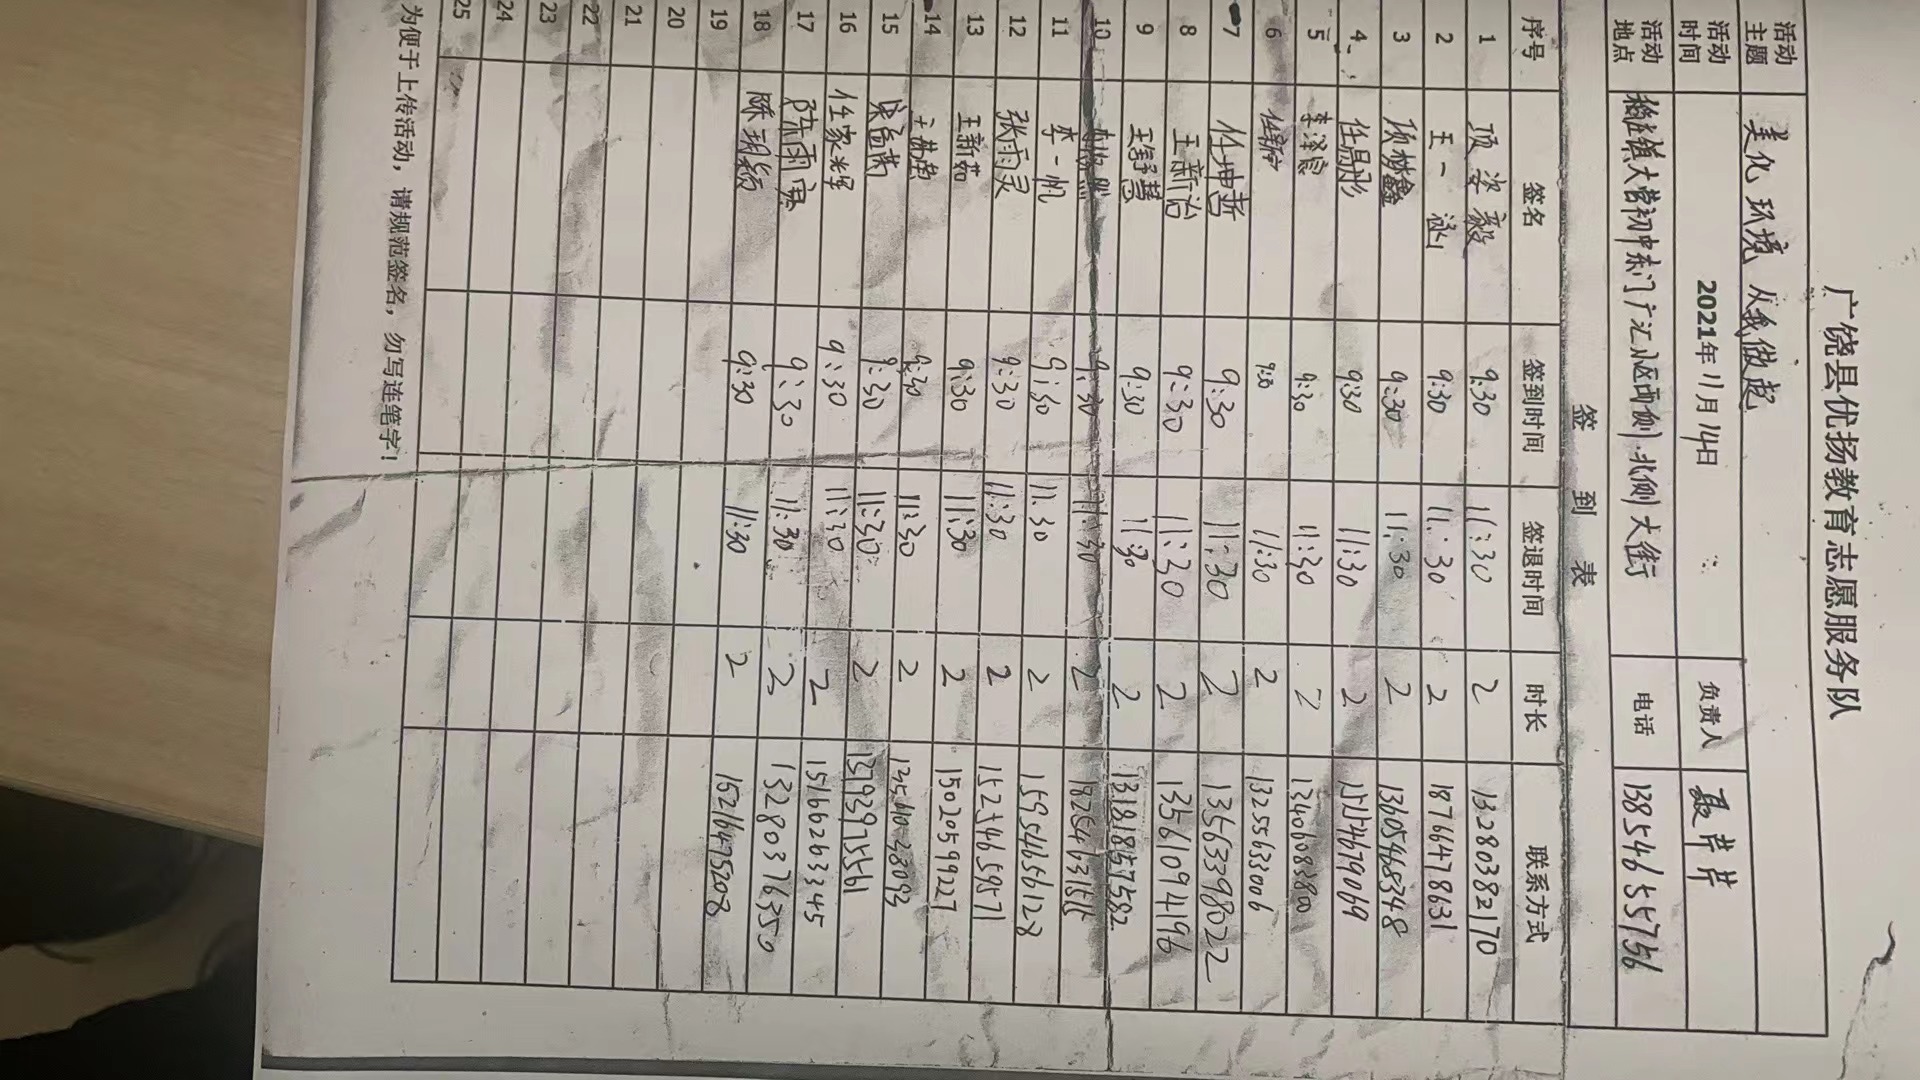 广饶县优扬教育志愿服务队
活动主题 美化环境 从我做起
活动时间 2021年11月14日 负责人 聂芹芹
活动地点 稻庄镇大营初中东门广汇小区西侧北侧大街 电话 13854655756
签 到 表
序号 签名 签到时间 签退时间 时长 联系方式
1 项姿毅 9:30 11:30 2 13280382170
2 王一涵 9:30 11:30 2 18766478631
3 项梦鑫 9:30 11:30 2 13605468348
4 任昌彤 9:30 11:30 2 15154679069
5 李泽宸 9:30 11:30 2 13406083800
6 9:30 11:30 2 13255663006
7 任坤哲 9:30 11:30 2 13563398022
8 王新治 9:30 11:30 2 13561094196
9 王舒慧 9:30 11:30 2 13181857582
10 9:30 11:30 2
11 李一帆 9:30 11:30 2 15954656128
12 张雨灵 9:30 11:30 2 15254659571
13 王新茹 9:30 11:30 2 15020599227
14 9:30 11:30 2 13561028093
15 9:30 11:30 2 13793975561
16 任家辉 9:30 11:30 2 15166263345
17 陈雨 9:30 11:30 2 13280376350
18 陈玥颖 9:30 11:30 2 15216475208
19
20
21
22
23
24
25
为便于上传活动，请规范签名，勿写连笔字！